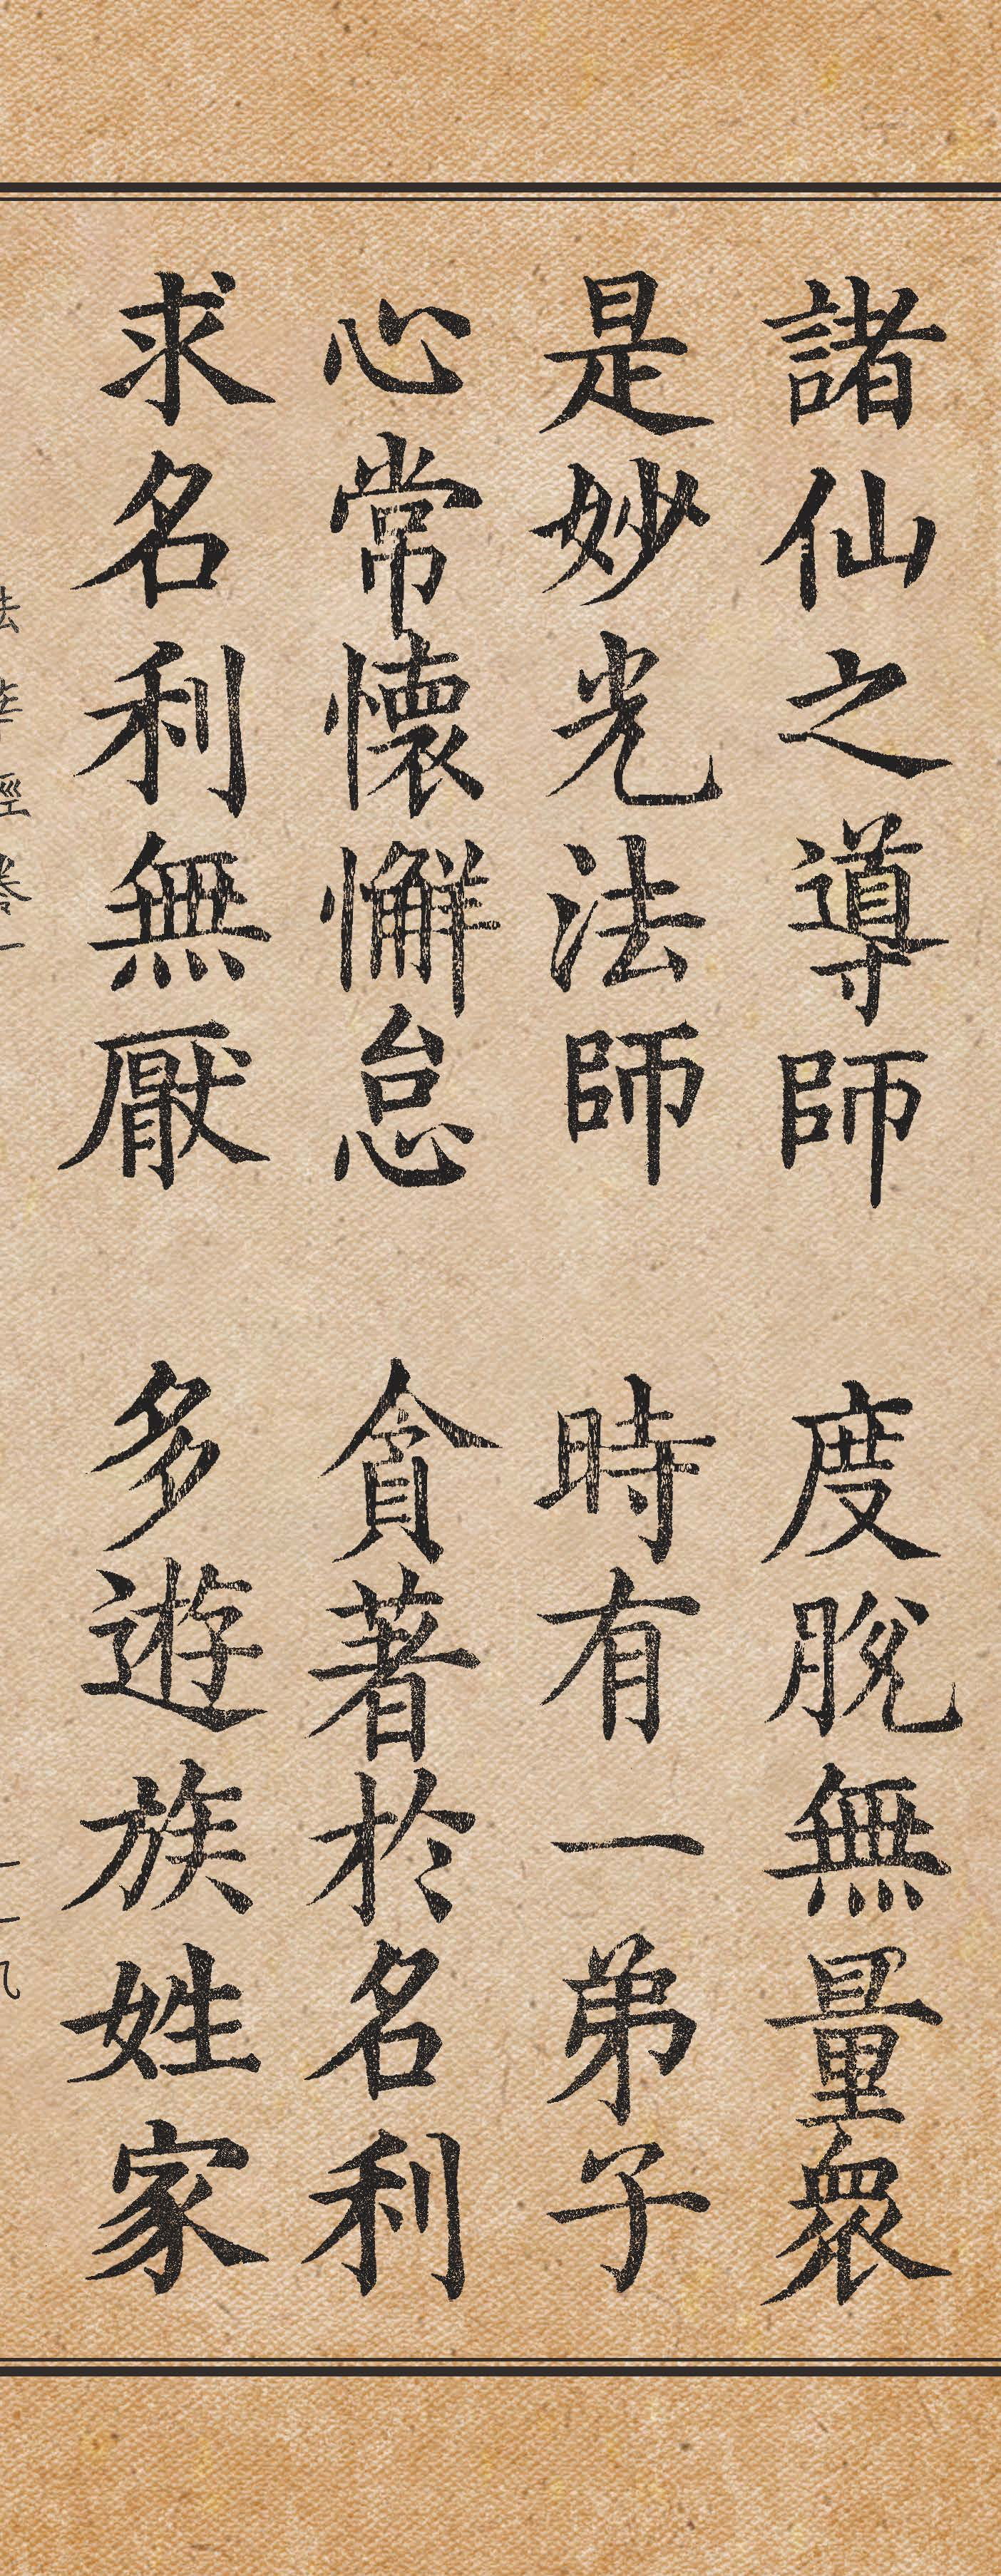 諸仙之導師　度脫無量眾
是妙光法師　時有一弟子
心常懷懈怠　貪著於名利
求名利無厭　多遊族姓家
法華經卷一　一一九